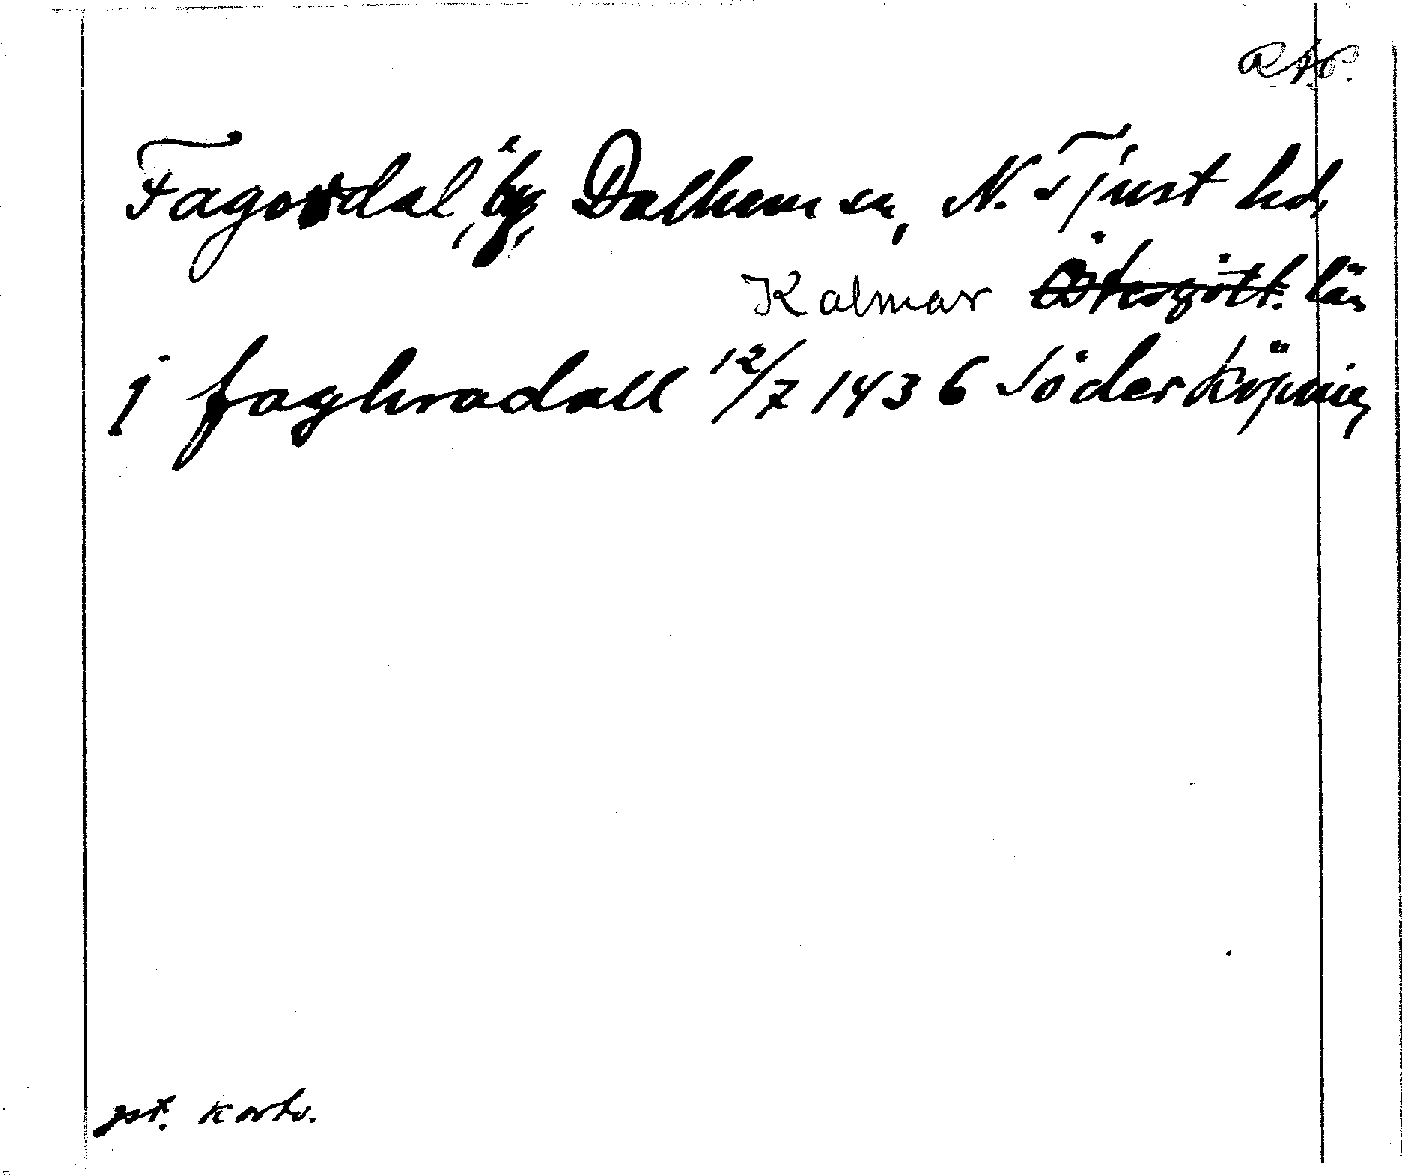 RAP.
Fagerdal, by, Dalhem sn, N. Tjust hd,
Kalmar Östergötl. län
j faghradall 12/7 1436 Söderköping
Kortv.